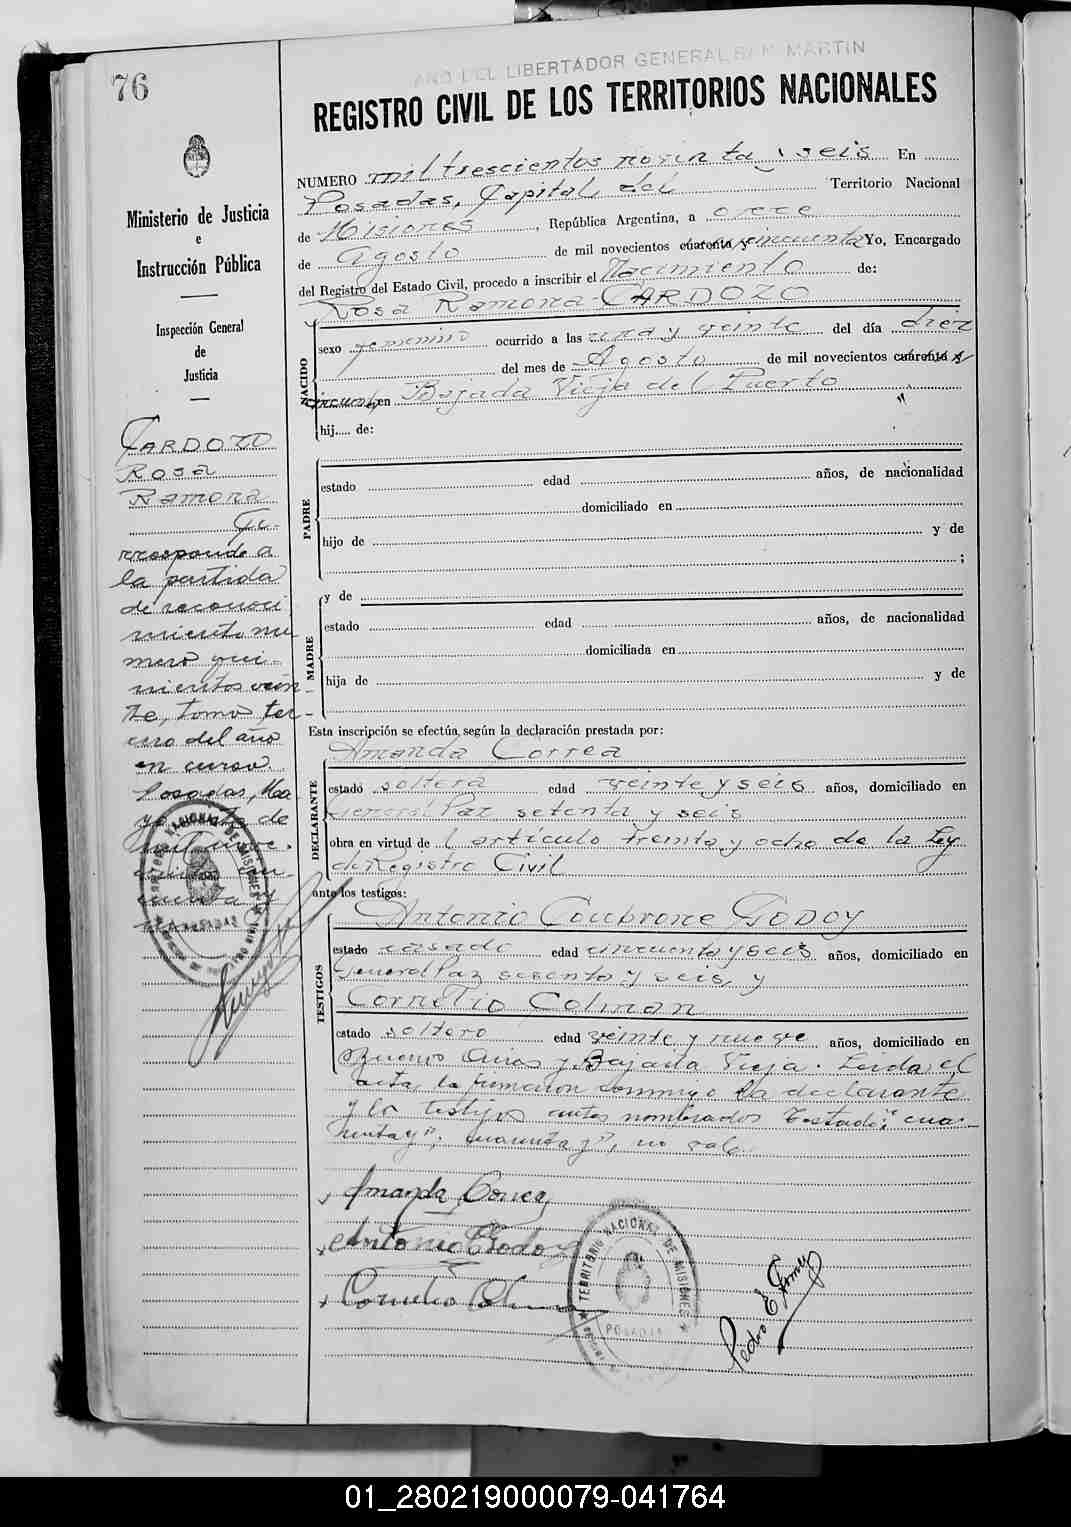 76
AÑO DEL LIBERTADOR GENERAL SAN MARTIN
REGISTRO CIVIL DE LOS TERRITORIOS NACIONALES
Ministerio de Justicia
e
Instrucción Pública
Inspección General
de
Justicia
CARDOZO
ROSA
Ramona
Co-
rresponde a
la partida
de reconoci
miento nu
mero qui-
nientos vein-
te, tomo ter-
cero del año
en curso.
Posadas, Ma-
yo
NUMERO mil trescientos noventa y seis En
Posadas, Capital del Territorio Nacional
de Misiones, República Argentina, a once
de Agosto de mil novecientos cuarenta y cincuenta Yo, Encargado
del Registro del Estado Civil, procedo a inscribir el Nacimiento de:
Rosa Ramona CARDOZO
NACIDO
sexo femenino ocurrido a las una y veinte del día diez
del mes de Agosto de mil novecientos cuarenta y
cincuenta en Bajada Vieja del Puerto "
hij..... de:
PADRE
estado edad años, de nacionalidad
domiciliado en
hijo de y de
;
MADRE
y de
estado edad años, de nacionalidad
domiciliada en
hija de y de
Esta inscripción se efectúa, según la declaración prestada por:
Amanda Correa
DECLARANTE
estado soltera edad veinte y seis años, domiciliado en
General Paz setenta y seis
obra en virtud de l artículo treinta y ocho de la Ley
de Registro Civil
ante los testigos:
Antonio Coubrone GODOY
TESTIGOS
estado casado edad cincuenta y seis años, domiciliado en
General Paz sesenta y seis, y
Cornelio Colman
estado soltero edad veinte y nueve años, domiciliado en
Buenos Aires y Bajada Vieja. Leida el
acta, la firmaron conmigo la declarante
y los testigos antes nombrados Testado: "cua-
renta y"; cuarenta y", no vale
Amanda Correa
Antonio C Godoy
Cornelio Colman
TERRITORIO NACIONAL DE MISIONES
POSADAS
Pedro E Gomez
01_280219000079-041764